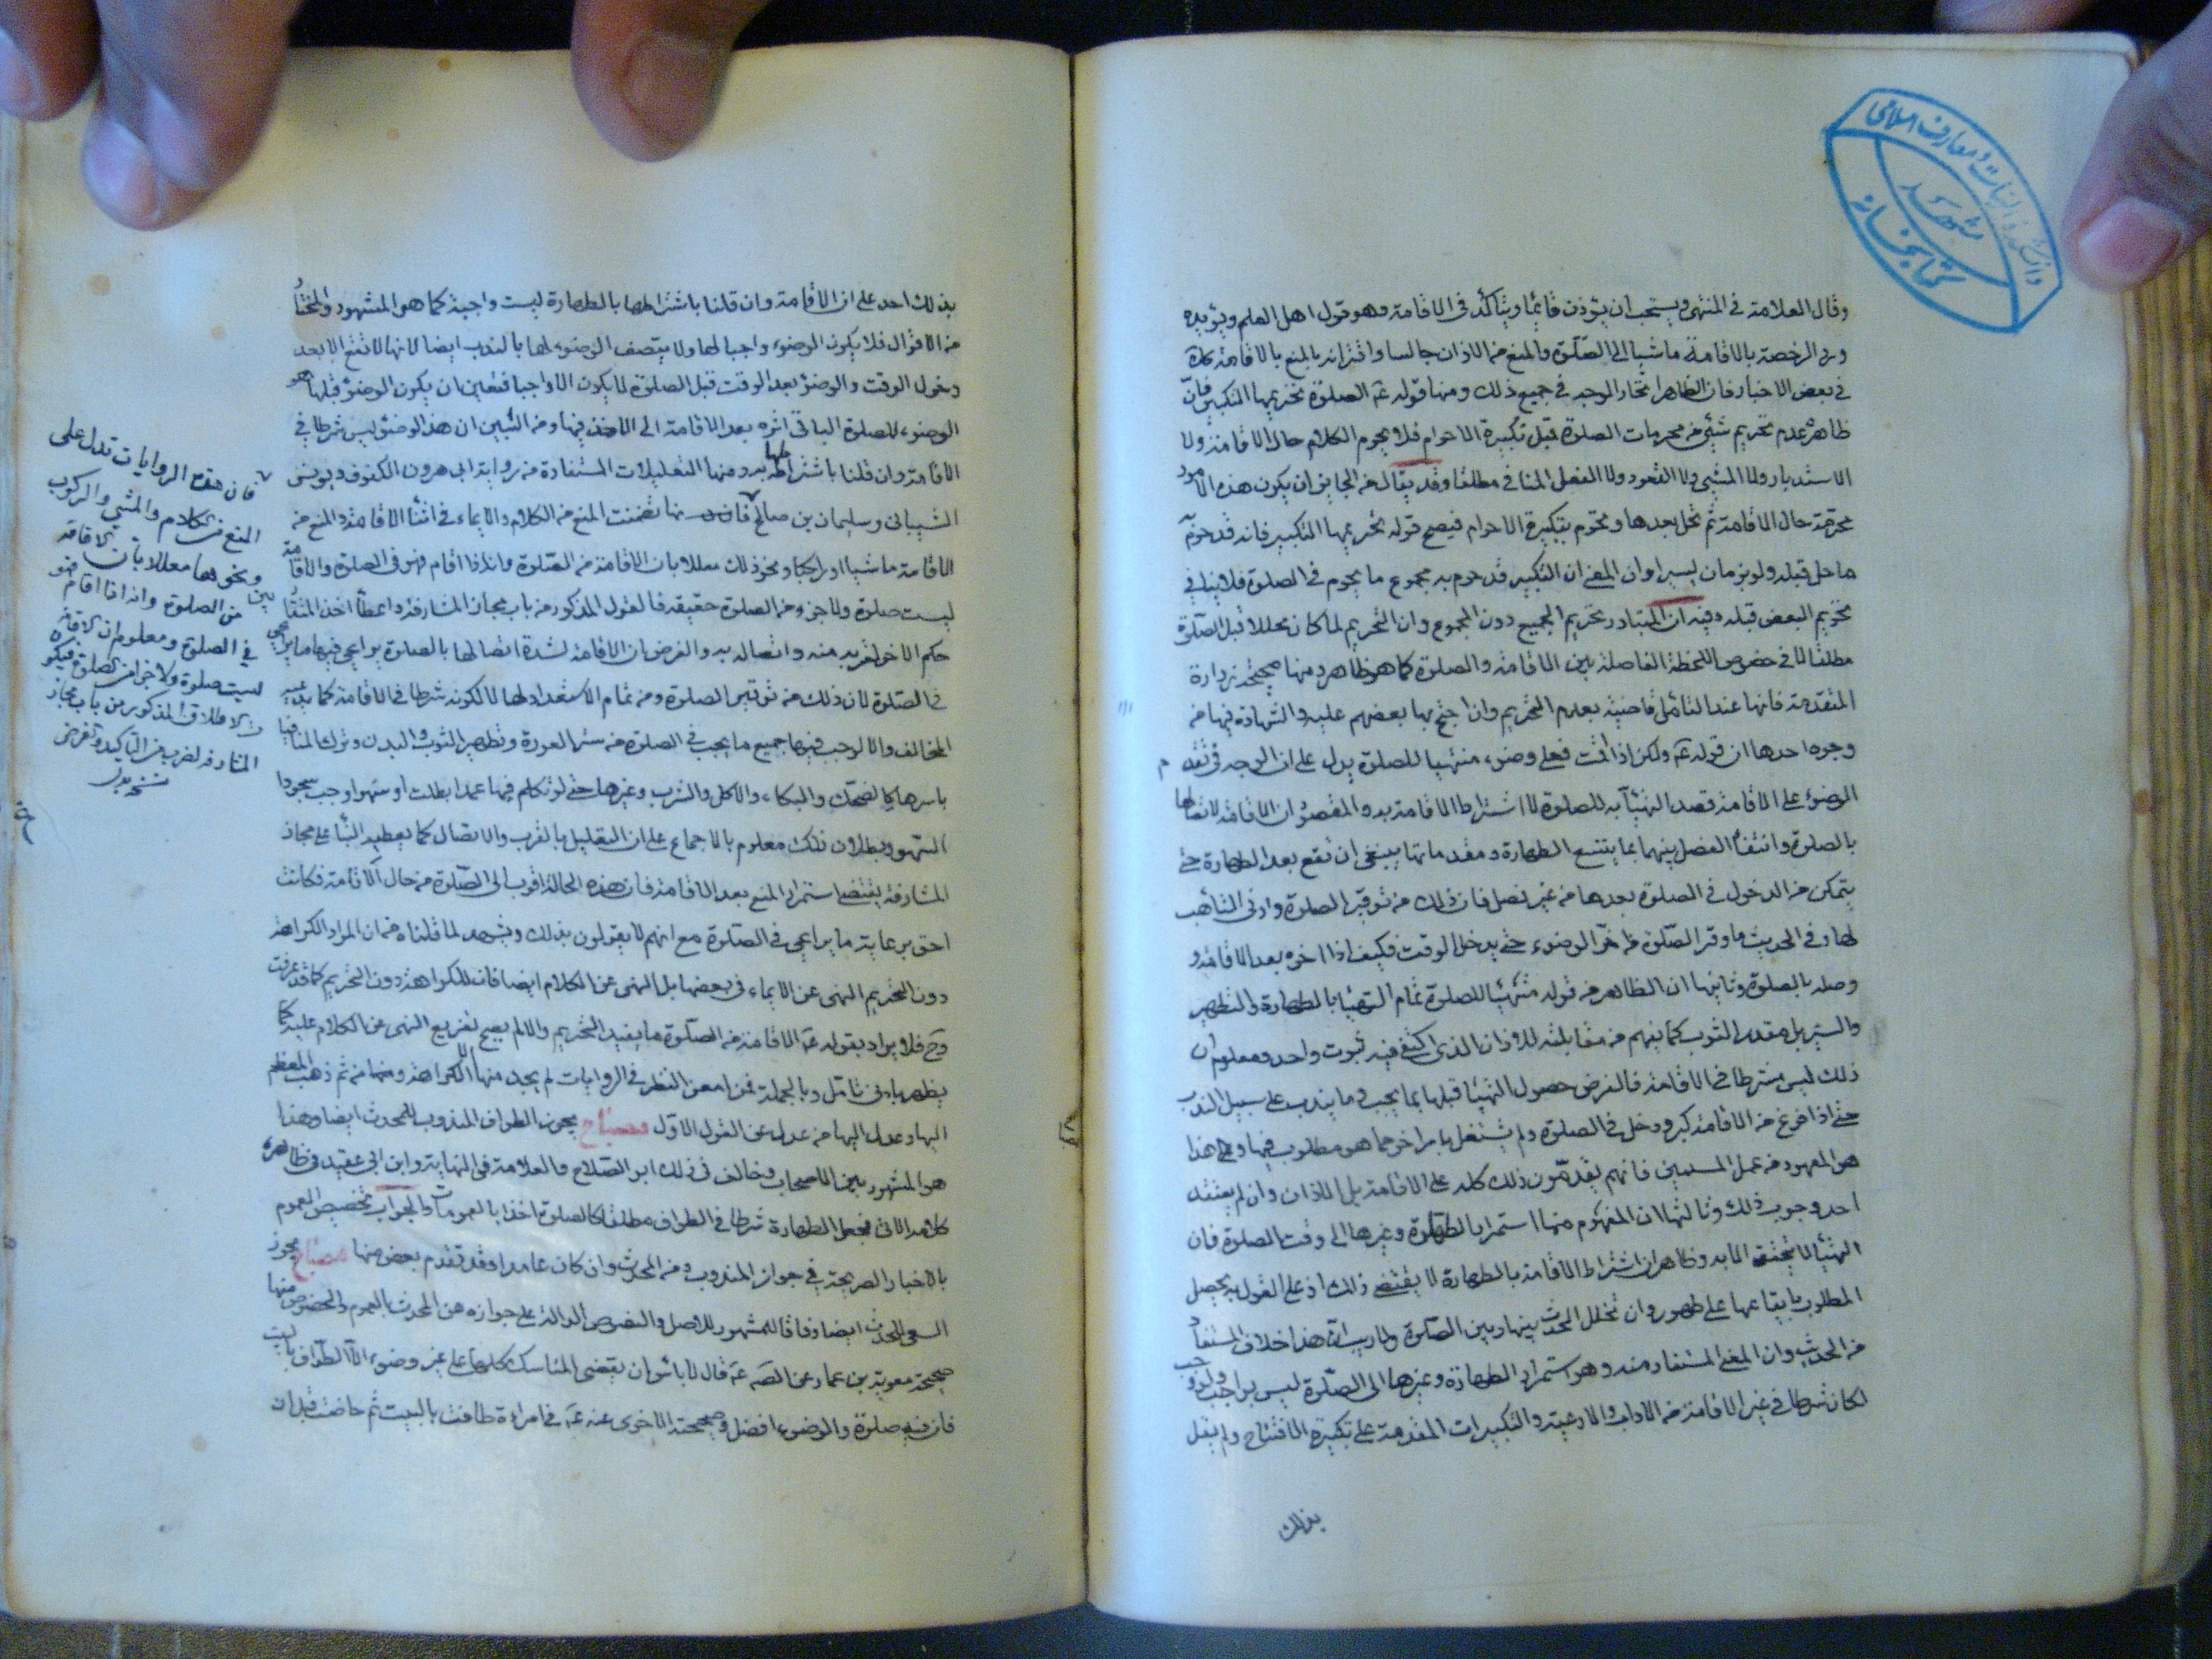 وقال العلامة في المنتهى ويستحب ان يؤذن قائما ويتأكد في الاقامة وهو قول اهل العلم ويؤيده
ورود الرخصة بالاقامة ماشيا الى الصلوة والمنع من الاذان جالسا واقترانه بالمنع بالاقامة
في بعض الاخبار فان الظاهر اتحاد الوجه في جميع ذلك ومنها قوله عم الصلوة تحريمها التكبير فان
ظاهره عدم تحريم شيء من محرمات الصلوة قبل تكبيرة الاحرام فلا يحرم الكلام حال الاقامة ولا
الاستدبار ولا المشي ولا القعود ولا الفعل المنافي مطلقا وقد يقال من الجايز ان يكون هذه الامور
محرمة حال الاقامة ثم تحل بعدها وتحرم بتكبيرة الاحرام فيصح قوله تحريمها التكبير فانه قد حرم
ما حل قبله ولو بزمان يسير او ان المعنى ان التكبير قد حرم به مجموع ما يحرم في الصلوة فلا ينافي
تحريم البعض قبله وفيه ان المتبادر تحريم الجميع دون المجموع وان التحريم لما كان محللا قبل الصلوة
مطلقا لا في خصوص اللحظة الفاصلة بين الاقامة والصلوة كما هو ظاهر ومنها صحيحة زرارة
المتقدمة فانها عند التأمل قاضية بعدم التحريم وان احتج بها بعضهم عليه والشهادة فيها من
وجوه احدها ان قوله عم ولكن اذا اقمت فعلى وضوء متهيئا للصلوة يدل على ان الوجه في تقدم
الوضوء على الاقامة قصد التهيأ به للصلوة لا اشتراط الاقامة به والمقصود ان الاقامة لاتصالها
بالصلوة وانتفاء الفصل بينهما بما يتسع الطهارة ومقدماتها ينبغي ان تقع بعد الطهارة حتى
يتمكن من الدخول في الصلوة بعدها من غير فصل فان ذلك من توقير الصلوة وادنى التأهب
لها وفي الحديث ما وقر الصلوة من اخر الوضوء حتى يدخل الوقت فكيف اذا اخره بعد الاقامة و
وصله بالصلوة وثانيها ان الظاهر من قوله متهيئا للصلوة تمام التهيأ بالطهارة والتطهير
والستر بل مقدر الثوب كما يفهم من مقابلته للاذان الذي اكتفى فيه بثوب واحد ومعلوم ان
ذلك ليس مشترطا في الاقامة فالغرض حصول التهيأ قبلها بما يجب وما يندب على سبيل الندب
حتى اذا فرغ من الاقامة كبر ودخل في الصلوة ولم يشتغل بامر اخر عما هو مطلوب فيها وعلى هذا
هو المعهود من عمل المسلمين فانهم يقدمون ذلك كله على الاقامة بل الاذان وان لم يعتقد
احد وجوب ذلك وثالثها ان المفهوم منها استمرار الطهارة وغيرها الى وقت الصلوة فان
التهيأ لا يتحقق الا به وظاهر ان اشتراط الاقامة بالطهارة لا يقتضي ذلك اذ على القول به يحصل
المطلوب بايقاعها على طهور وان تخلل الحدث بينها وبين الصلوة ولا ريب ان هذا خلاف المستفاد
من الحديث وان المعنى المستفاد منه وهو استمرار الطهارة وغيرها الى الصلوة ليس بواجب ولو وجب
لكان شرطا في غير الاقامة من الاداب والادعية والتكبيرات المقدمة على تكبيرة الافتتاح ولم يقل
بذلك
بذلك احد على ان الاقامة وان قلنا باشتراطها بالطهارة ليست واجبة كما هو المشهور والمختار
من الاقوال فلا يكون الوضوء واجبا لها ولا يتصف الوضوء لها بالندب ايضا لانها لا تقع الا بعد
دخول الوقت والوضوء بعد الوقت قبل الصلوة لا يكون الا واجبا فتعين ان يكون الوضوء قبلها هو
الوضوء للصلوة الباقي اثره بعد الاقامة الى الاخذ فيها ومن البين ان هذا الوضوء ليس شرطا في
الاقامة وان قلنا باشتراطها به ومنها التعليلات المستفادة من رواية ابي هرون المكفوف ويونس
الشيباني وسليمان بن صالح فان تضمنت المنع من الكلام والايماء في اثناء الاقامة والمنع من
الاقامة ماشيا او راكبا ونحو ذلك معللا بان الاقامة من الصلوة وانه اذا اقام فهو في الصلوة والاقامة
ليست صلوة ولا جزء من الصلوة حقيقة فالقول المذكور من باب مجاز المشارفة واعطاء احد المتقاربين
حكم الاخر لقربه منه واتصاله به والغرض ان الاقامة لشدة اتصالها بالصلوة يراعى فيها ما يراعى
في الصلوة لان ذلك من توقير الصلوة ومن تمام الاستعداد لها لا لكونه شرطا في الاقامة كما يدعيه
المخالف والا لوجب فيها جميع ما يجب في الصلوة من ستر العورة وتطهير الثوب والبدن وترك المنافيات
باسرها كالضحك والبكاء والاكل والشرب وغيرها حتى لو تكلم فيها عمدا بطلت او سهوا وجب سجود
السهو وبطلان ذلك معلوم بالاجماع على ان التعليل بالقرب والاتصال كما يعطيه البناء على مجاز
المشارفة يقتضي استمرار المنع بعد الاقامة فان هذه الحالة اقرب الى الصلوة من حال الاقامة فكانت
احق برعاية ما يراعى في الصلوة مع انهم لا يقولون بذلك ويشهد لما قلناه من ان المراد الكراهة
دون التحريم النهي عن الايماء في بعضها بل النهي عن الكلام ايضا فانه للكراهة دون التحريم كما قد عرفت
وح فلا يراد بقوله عم الاقامة من الصلوة ما يفيد التحريم والا لم يصح تفريع النهي عن الكلام عليه كما
يظهر بادنى تأمل وبالجملة فمن امعن النظر في الروايات لم يجد منها الا الكراهة ومن ثم ذهب المعظم
اليها وعدل اليها من عدل عن القول الاول مصباح يجوز الطواف المندوب للمحدث ايضا وهذا
هو المشهور بين الاصحاب وخالف في ذلك ابو الصلاح والعلامة في النهاية وابن ابي عقيل في ظاهر
كلامه الاتي فجعلوا الطهارة شرطا في الطواف مطلقا كالصلوة اخذا بالعمومات والجواب تخصيص العموم
بالاخبار الصريحة في جواز المندوب من المحدث وان كان عامدا وقد تقدم بعض منها مصباح يجوز
السعي للمحدث ايضا وفاقا للمشهور للاصل والنصوص الدالة على جوازه من المحدث بالعموم والخصوص منها
صحيحة معوية بن عمار عن الصـ عم قال لا باس ان يقضي المناسك كلها على غير وضوء الا الطواف بالبيت
فان فيه صلوة والوضوء افضل وصحيحته الاخرى عنه عم في امراة طافت بالبيت ثم حاضت قبل ان
فان هذه الروايات تدل على
المنع من الكلام والمشي والركوب
ونحوها معللا بان الاقامة
من الصلوة وانه اذا اقام فهو
في الصلوة ومعلوم ان الاقامة
ليست صلوة ولا جزء من الصلوة فيكون
الاطلاق المذكور من باب مجاز
المشارفة لضرب من التأكيد والغرض
نسخه بدل
دانشكده الهيات و معارف اسلامى
مشهد
كتابخانه